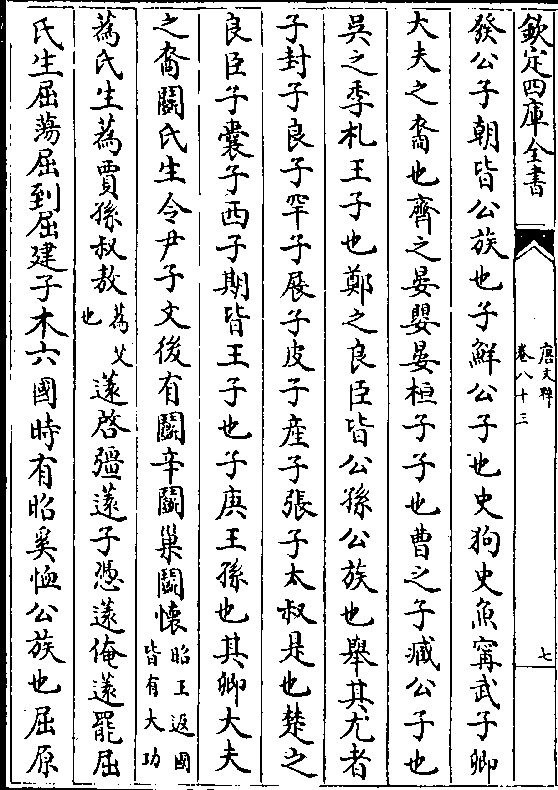 欽定四庫全書
唐文粹
卷八十三
七
發公子朝皆公族也子鮮公子也史狗史魚甯武子卿
大夫之裔也齊之晏嬰晏桓子子也曹之子臧公子也
吳之季札王子也鄭之良臣皆公孫公族也舉其尤者
子封子良子罕子展子皮子産子張子太叔是也楚之
良臣子囊子西子期皆王子也子庚王孫也其卿大夫
之裔鬭氏生令尹子文後有鬭辛鬭巢鬭懷昭王返國皆有大功
蔿氏生蔿賈孫叔敖蔿父也薳啓彊薳子憑薳俺薳罷屈
氏生屈蕩屈到屈建子木六國時有昭奚恤公族也屈原